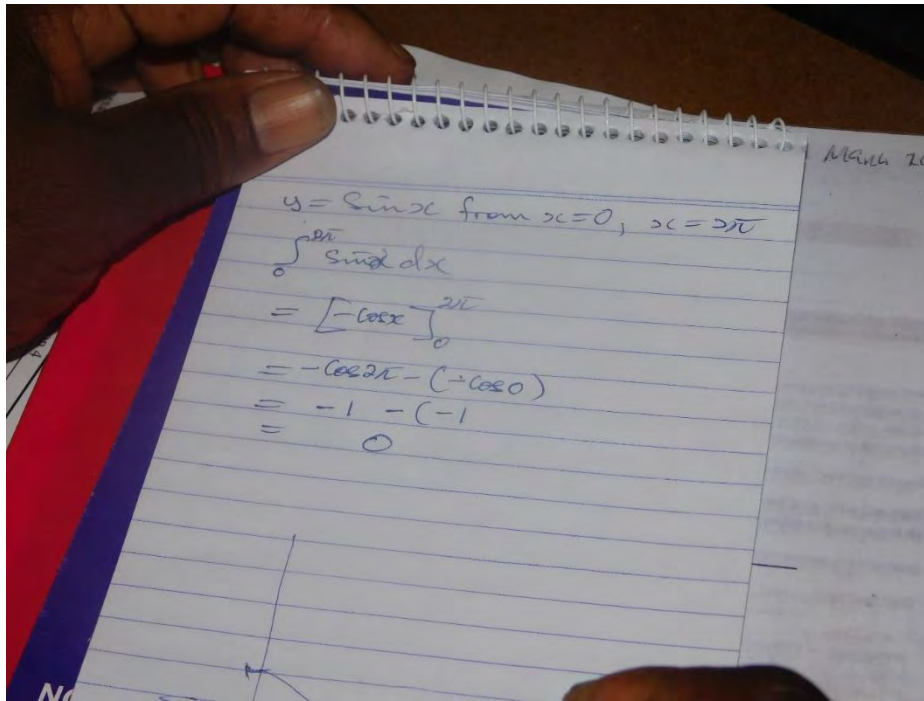 y = Sin x from x=0, x=2π
∫₀²π sin x dx
= [-cos x]₀²π
= -Cos2π - (-cos0)
= -1 - (-1
= 0